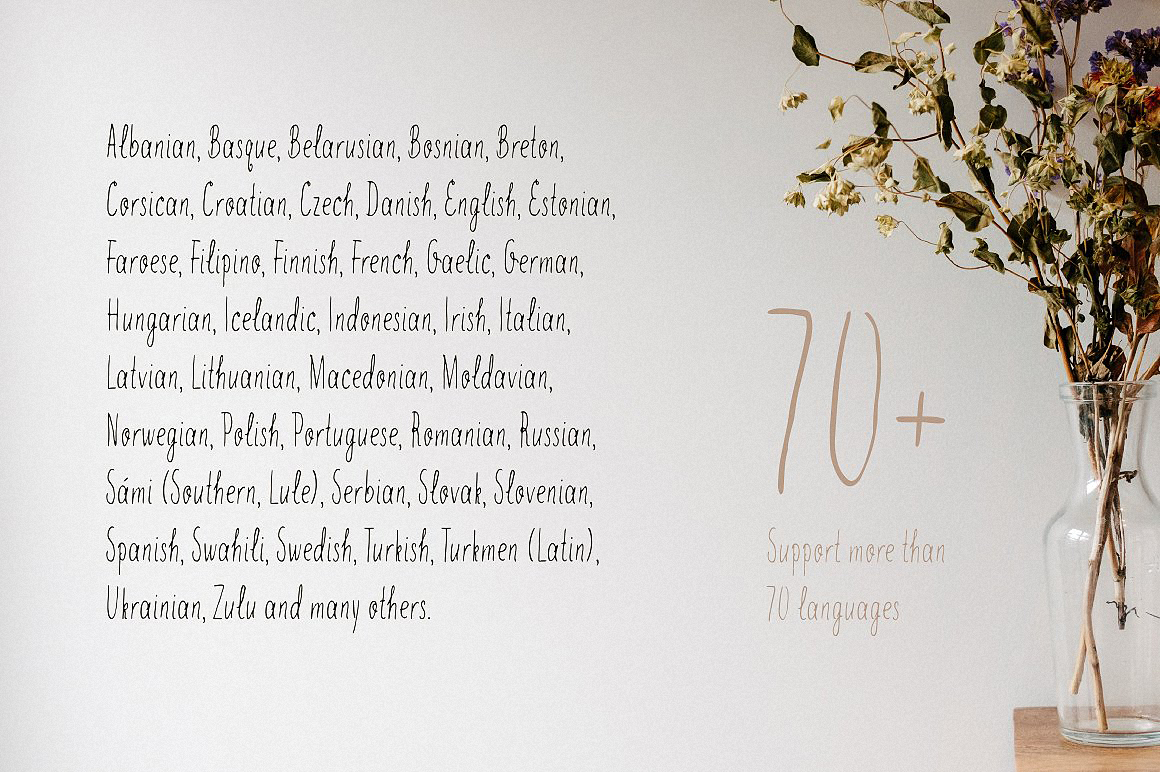 Albanian, Basque, Belarusian, Bosnian, Breton,
Corsican, Croatian, Czech, Danish, English, Estonian,
Faroese, Filipino, Finnish, French, Gaelic, German,
Hungarian, Icelandic, Indonesian, Irish, Italian,
Latvian, Lithuanian, Macedonian, Moldavian,
Norwegian, Polish, Portuguese, Romanian, Russian,
Sámi (Southern, Lule), Serbian, Slovak, Slovenian,
Spanish, Swahili, Swedish, Turkish, Turkmen (Latin),
Ukrainian, Zulu and many others.
70+
Support more than
70 languages